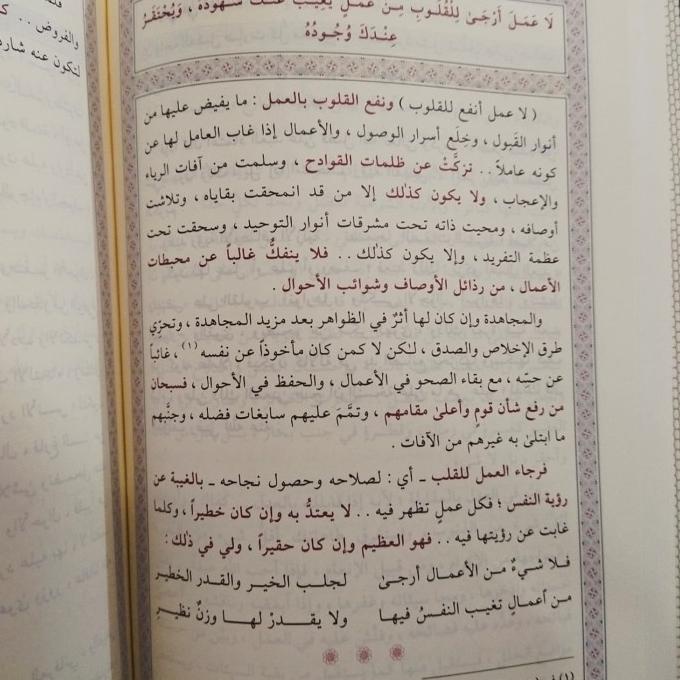 لَا عَمَلَ أَرْجَىٰ لِلْقُلُوبِ مِنْ عَمَلٍ يَغِيبُ عَنْكَ شُهُودُهُ ، وَيُحْتَقَرُ
عِنْدَكَ وُجُودُهُ
( لا عمل أنفع للقلوب ) ونفع القلوب بالعمل : ما يفيض عليها من
أنوار القَبول ، وخِلَعِ أسرار الوصول ، والأعمال إذا غاب العامل لها عن
كونه عاملاً . . تزكَّتْ عن ظلمات القوادح ، وسلمت من آفات الرياء
والإعجاب ، ولا يكون كذلك إلا من قد انمحقت بقاياه ، وتلاشت
أوصافه ، ومحيت ذاته تحت مشرقات أنوار التوحيد ، وسحقت تحت
عظمة التفريد ، وإلا يكون كذلك . . فلا ينفكُّ غالباً عن محبطات
الأعمال ، من رذائل الأوصاف وشوائب الأحوال .
والمجاهدة وإن كان لها أثرٌ في الظواهر بعد مزيد المجاهدة ، وتحرِّي
طرق الإخلاص والصدق ، لكن لا كمن كان مأخوذاً عن نفسه (١) ، غائباً
عن حسِّه ، مع بقاء الصحو في الأعمال ، والحفظ في الأحوال ، فسبحان
من رفع شأن قومٍ وأعلىٰ مقامهم ، وتمَّمَ عليهم سابغات فضله ، وجنَّبهم
ما ابتلىٰ به غيرهم من الآفات .
فرجاء العمل للقلب ـ أي : لصلاحه وحصول نجاحه ـ بالغيبة عن
رؤية النفس ؛ فكل عملٍ تظهر فيه . . لا يعتدُّ به وإن كان خطيراً ، وكلما
غابت عن رؤيتها فيه . . فهو العظيم وإن كان حقيراً ، ولي في ذلك :
فلا شيءٌ من الأعمال أرجىٰ لجلب الخير والقدر الخطير
من أعمالٍ تغيب النفسُ فيها ولا يقدرْ لها وزنٌ نظيرِ
والفروض . .
لتكون عنه شارد